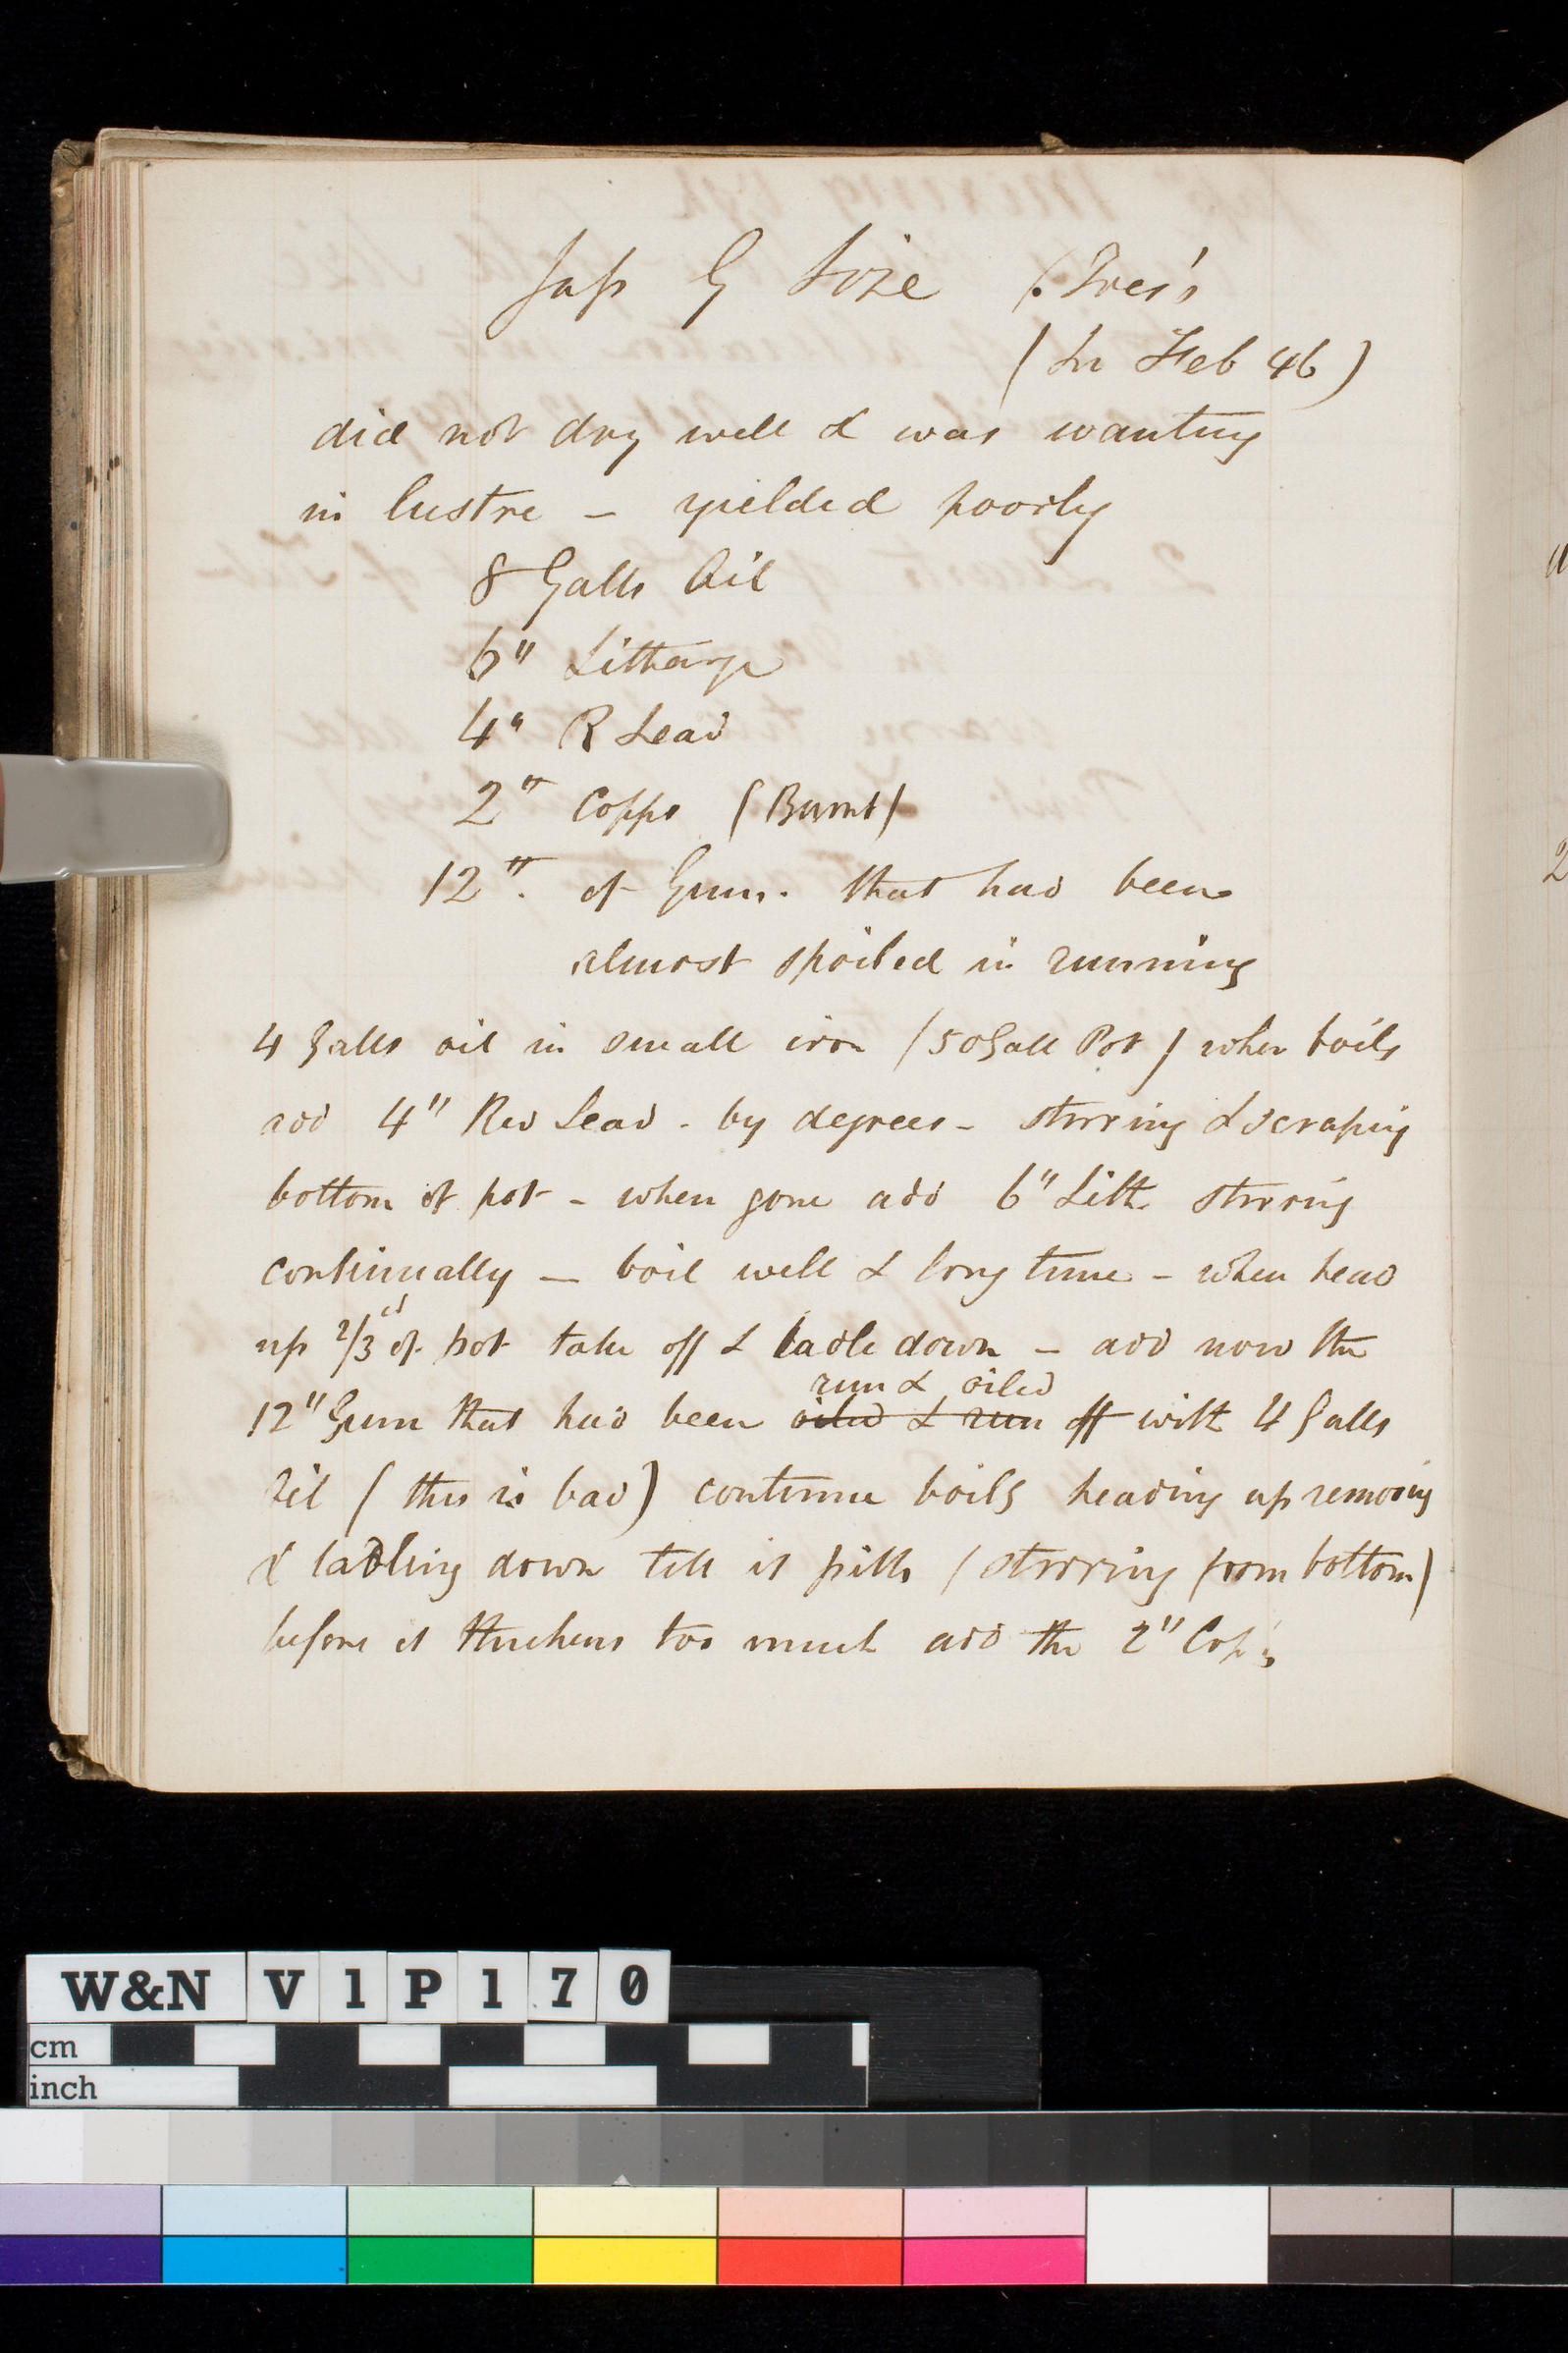 Jap G Size (Ives's
(In Feb 46)
did not dry well & was wanting
in lustre – yielded poorly
8 Galls Oil
6" Litharge
4" R Lead
2" Copps (Burnt)
12". of Gum. that had been
almost spoiled in running
4 Galls oil in small iron (50 Gall Pot) when boils
add 4" Red Lead - by degrees - stirring & scraping
bottom of pot - when gone add 6" Lith stirring
continually – boil well & long time - when head
up 2/3ds of pot take off & ladle down – add now the
run & oiled
12" Gum that had been oiled & run off with 4 Galls
Oil (this is bad) continue boilg heading up removing
& ladling down till it pills (stirring from bottom)
before it thickens too much add the 2" Cop's
W&N V1P170
cm
inch